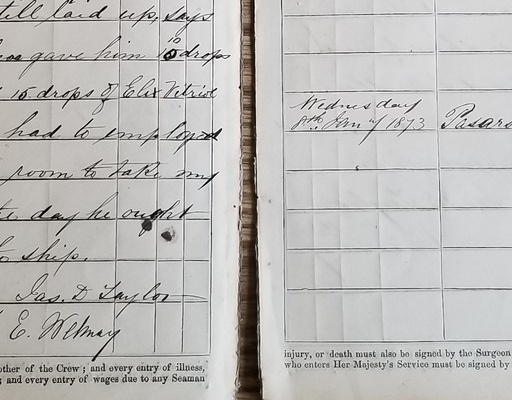 till laid up, says
gave him 15 drops
15 drops of Elix Vitriol
had to employed
room to take my
day he ought
ship.
Jas. D Taylor
E.
other of the Crew; and every entry of illness,
; and every entry of wages due to any Seaman
Wednesday
8th Jany 1873
injury, or death must also be signed by the Surgeon
who enters Her Majesty's Service must be signed by